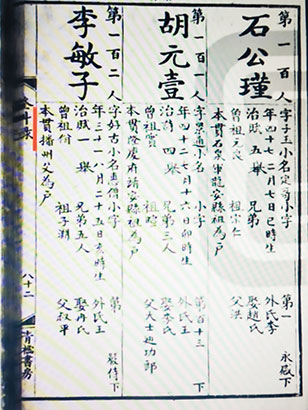 第一百一人
石公瑾
字子玉小名定哥小字
年四十七二月七日巳時生
外氏李
第一
永感下
治賦五舉
兄弟
娶趙氏
曾祖元炎
祖宗仁
父洪
本貫石泉軍龍安縣祖為戶
第一百一人
胡元壹
小名
小字
第百十三
下
年四十七月十六日卯時生
外氏王
治詩四舉
兄弟二人
娶李氏
曾祖賓
祖
父大士迪功郎
本貫隆慶府靖安縣祖為戶
第一百二人
李敏子
字好古小名惠僧小字
第一
嚴侍下
年三十一八月二十五日亥時生
外氏王
治賦一舉
兄弟五人
娶冉氏
曾祖
祖子淵
父叔平
本貫播州父為戶
八十二
青
書房